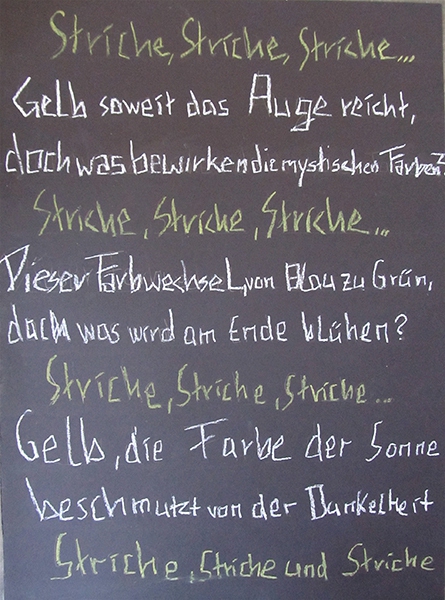 Striche, Striche, Striche...
Gelb soweit das Auge reicht,
doch was bewirken die mystischen Farben?
Striche, Striche, Striche...
Dieser Farbwechsel, von Blau zu Grün,
doch was wird am Ende blühen?
Striche, Striche, Striche...
Gelb, die Farbe der Sonne
beschmutzt von der Dunkelheit
Striche, Striche und Striche